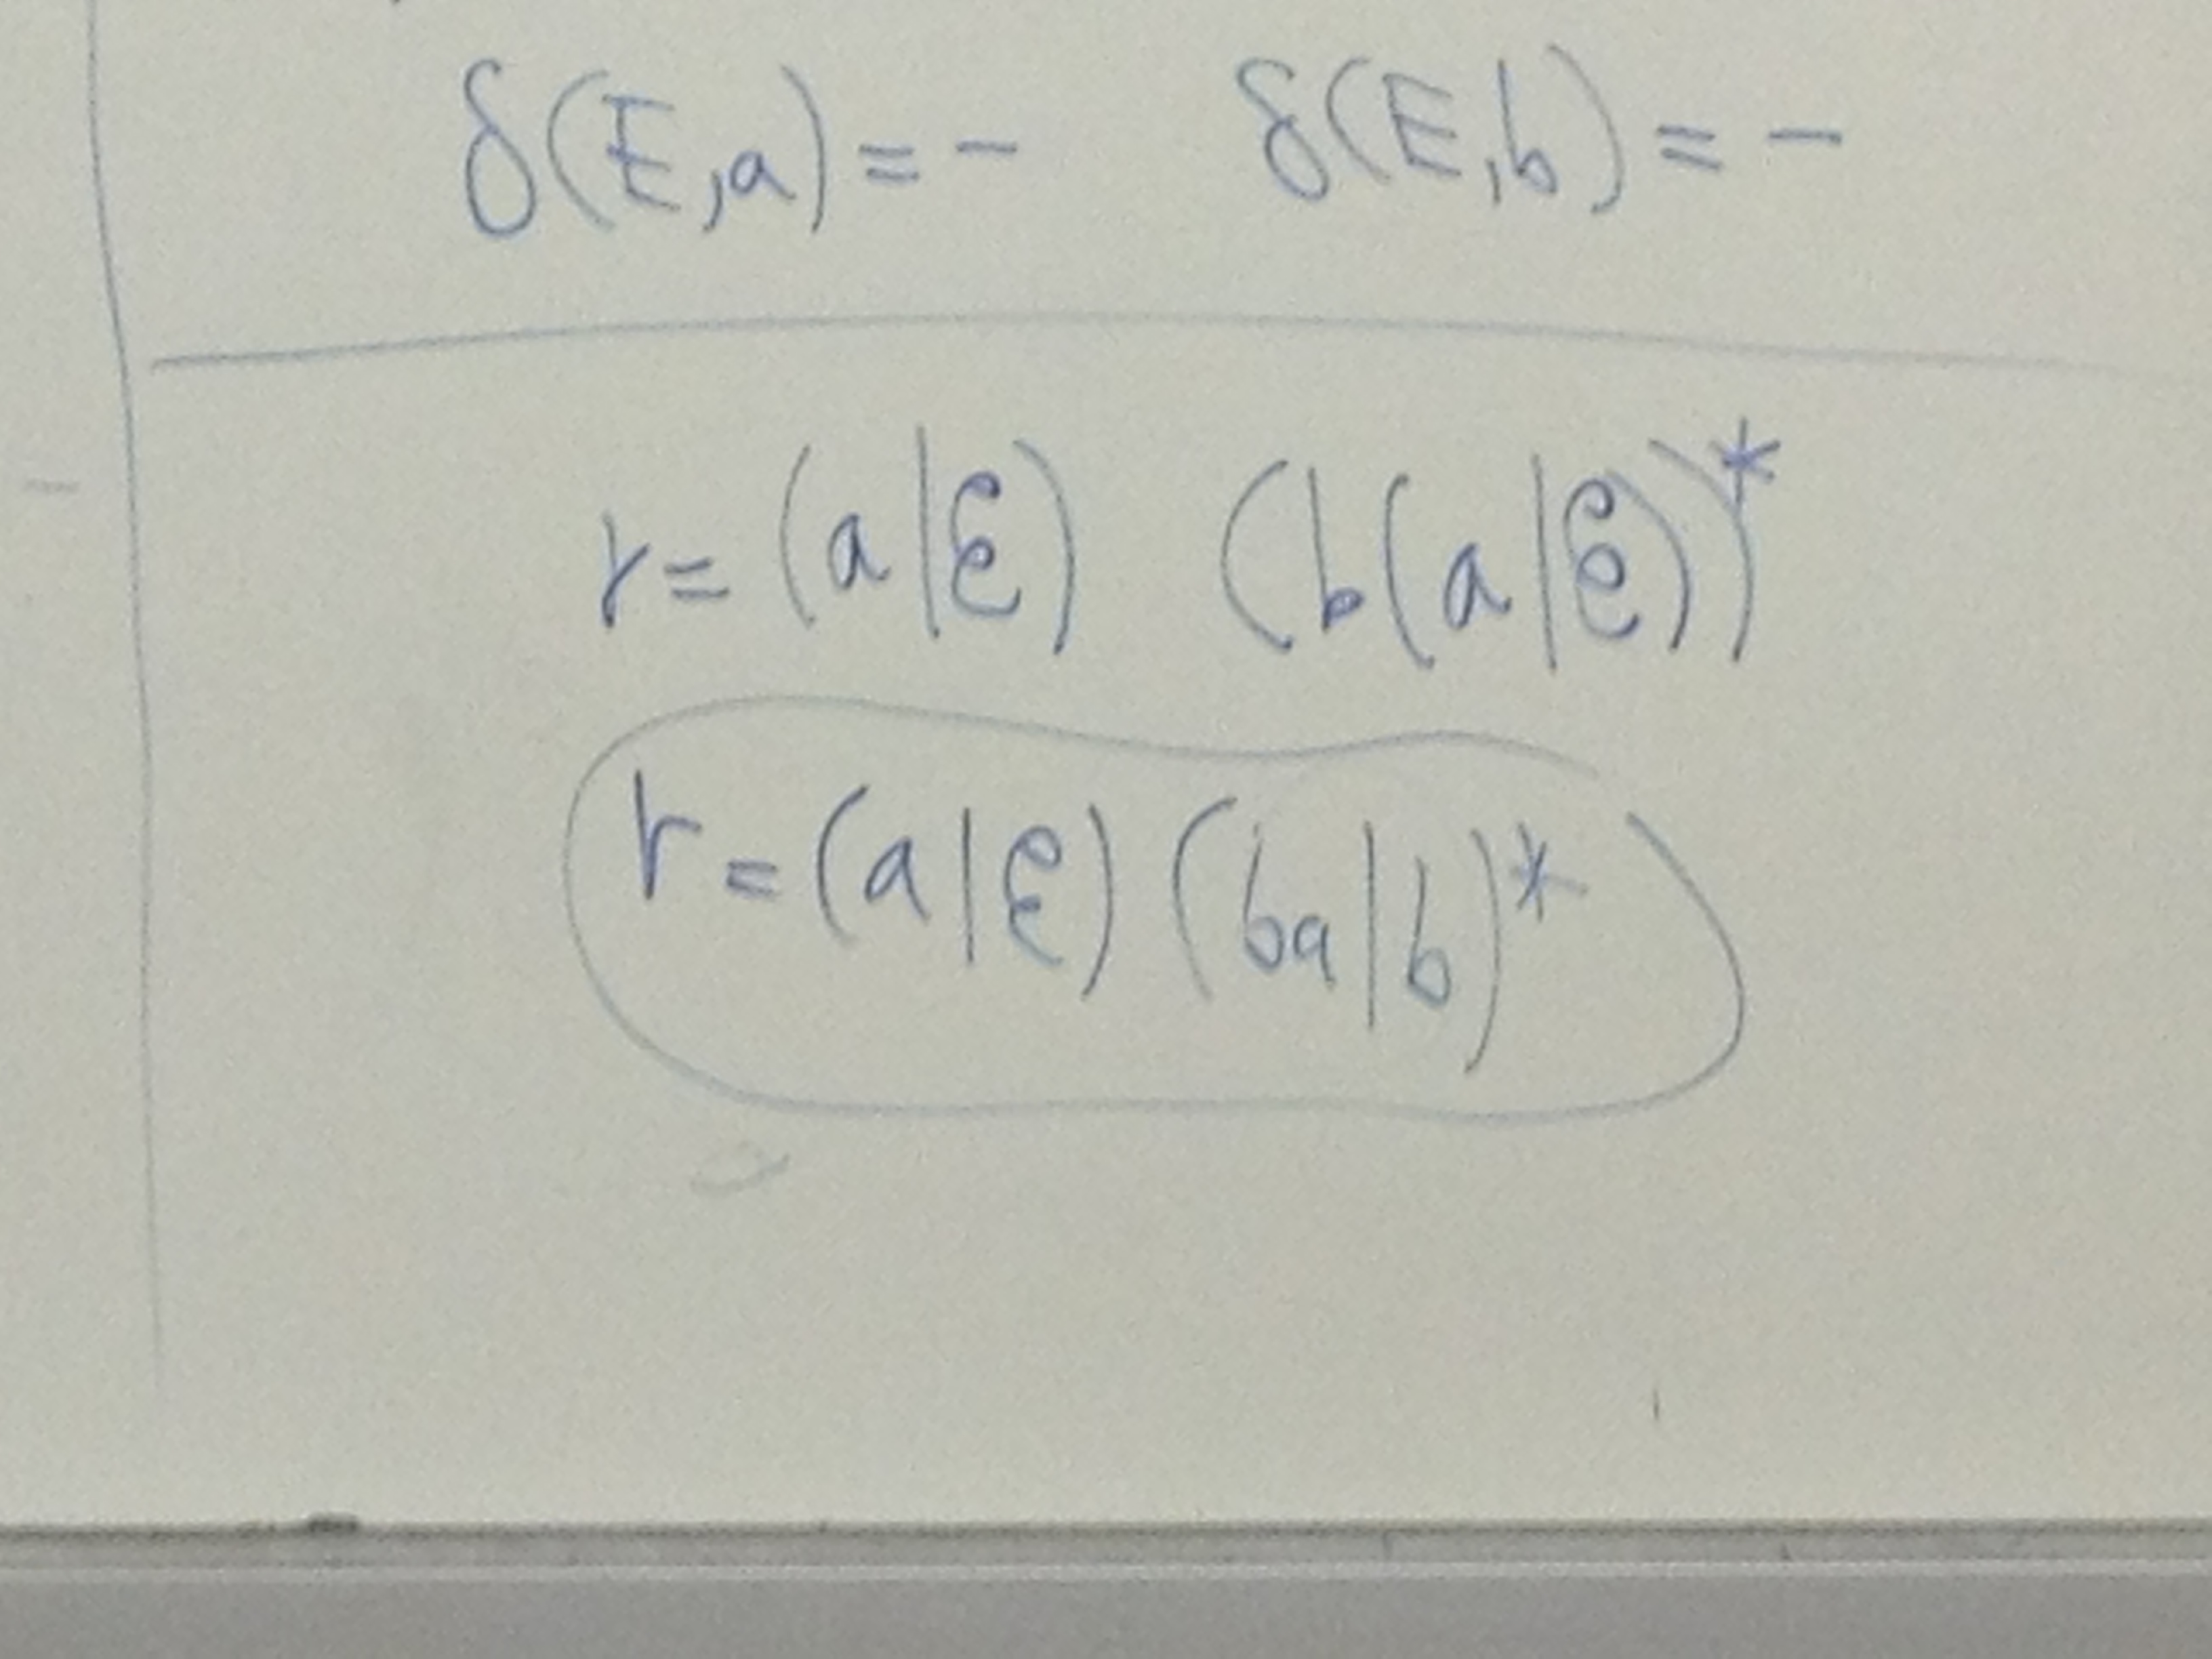 δ(E,a) = - δ(E,b) = -
r = (a|ε) (b(a|ε))*
r = (a|ε)(ba|b)*